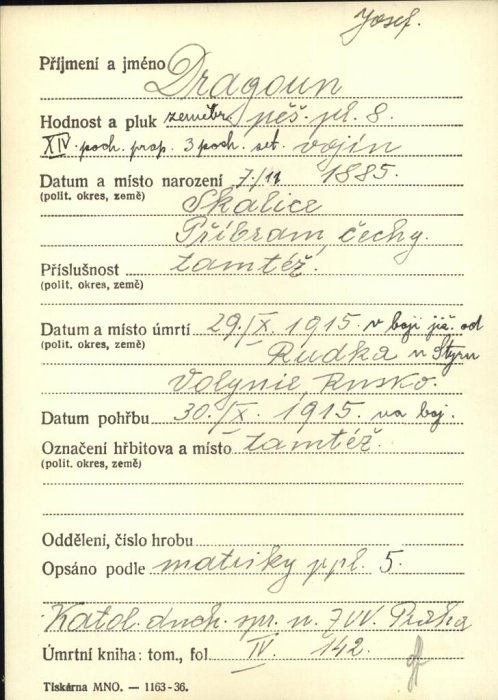 Josef.
Příjmení a jméno Dragoun
Hodnost a pluk zeměbr. pěš. pl. 8.
XIV. poch. prap. 3 poch. set. vojín
Datum a místo narození 7./11 1885.
(polit. okres, země) Skalice
Příbram, čechy.
Příslušnost tamtéž.
(polit. okres, země)
Datum a místo úmrtí 29./IX. 1915. v boji již. od
(polit. okres, země) Rudka u Styru
Volynie, Rusko.
Datum pohřbu 30./IX. 1915. na boj.
Označení hřbitova a místo tamtéž.
(polit. okres, země)
Oddělení, číslo hrobu
Opsáno podle matriky ppl. 5.
Katol. duch. spr. n. ZVV. Praha
Úmrtní kniha: tom., fol. IV. 142.
Tiskárna MNO. — 1163-36.